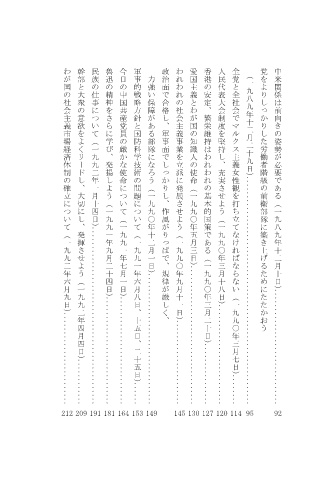 中米関係は前向きの姿勢が必要である（一九八九年十二月十日）……………… 92
党をよりしっかりした労働者階級の前衛部隊に築きあげるためにたたかおう
（一九八九年十二月二十九日）……………… 95
全党と全社会でマルクス主義女性観を打ち立てなければならない（一九九〇年三月七日）…… 114
人民代表大会制度を堅持し、充実させよう（一九九〇年三月十八日）……………… 120
香港の安定、繁栄維持はわれわれの基本的国策である（一九九〇年三月二十日）……… 127
愛国主義とわが国の知識人の使命（一九九〇年五月三日）……………… 130
われわれの社会主義事業を立派に発展させよう（一九九〇年九月十一日）……… 145
政治面で合格し、軍事面でしっかりし、作風がりっぱで、規律が厳しく、
力強い保障がある部隊になろう（一九九〇年十二月一日）……………… 149
軍事的戦略方針と国防科学技術の問題について（一九九一年六月八日、十五日、二十五日）…… 153
今日の中国共産党員の厳かな使命について（一九九一年七月一日）……………… 164
魯迅の精神をさらに学び、発揚しよう（一九九一年九月二十四日）……………… 181
民族の仕事について（一九九二年一月十四日）……………… 191
幹部と大衆の意欲をよくリードし、大切にし、発揮させよう（一九九二年四月四日）…… 209
わが国の社会主義市場経済体制の確立について（一九九二年六月九日）……………… 212